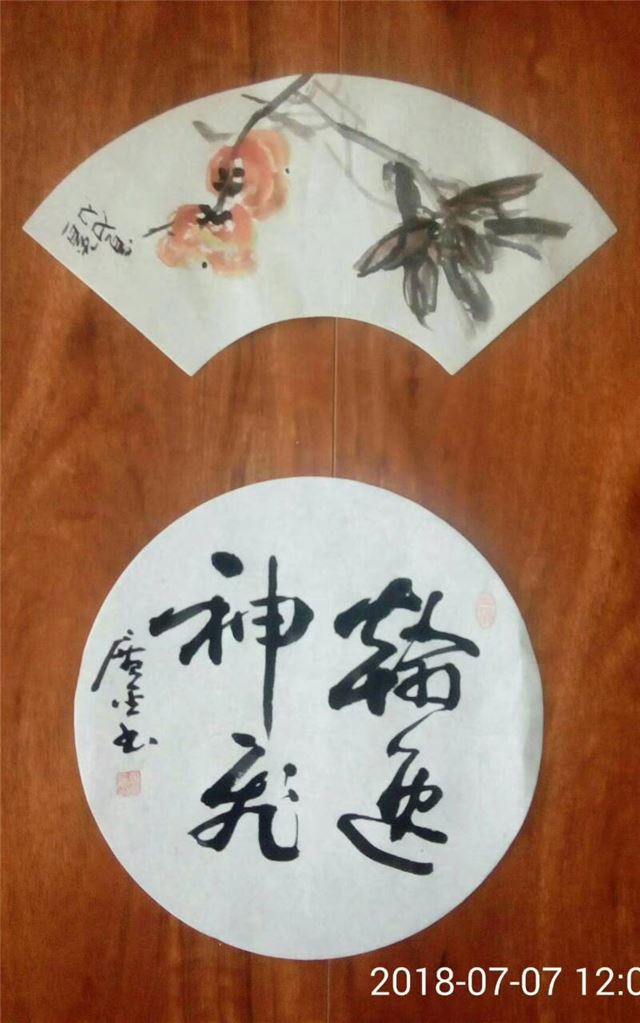 翰逸
神飛
廣金书
2018-07-07 12:0